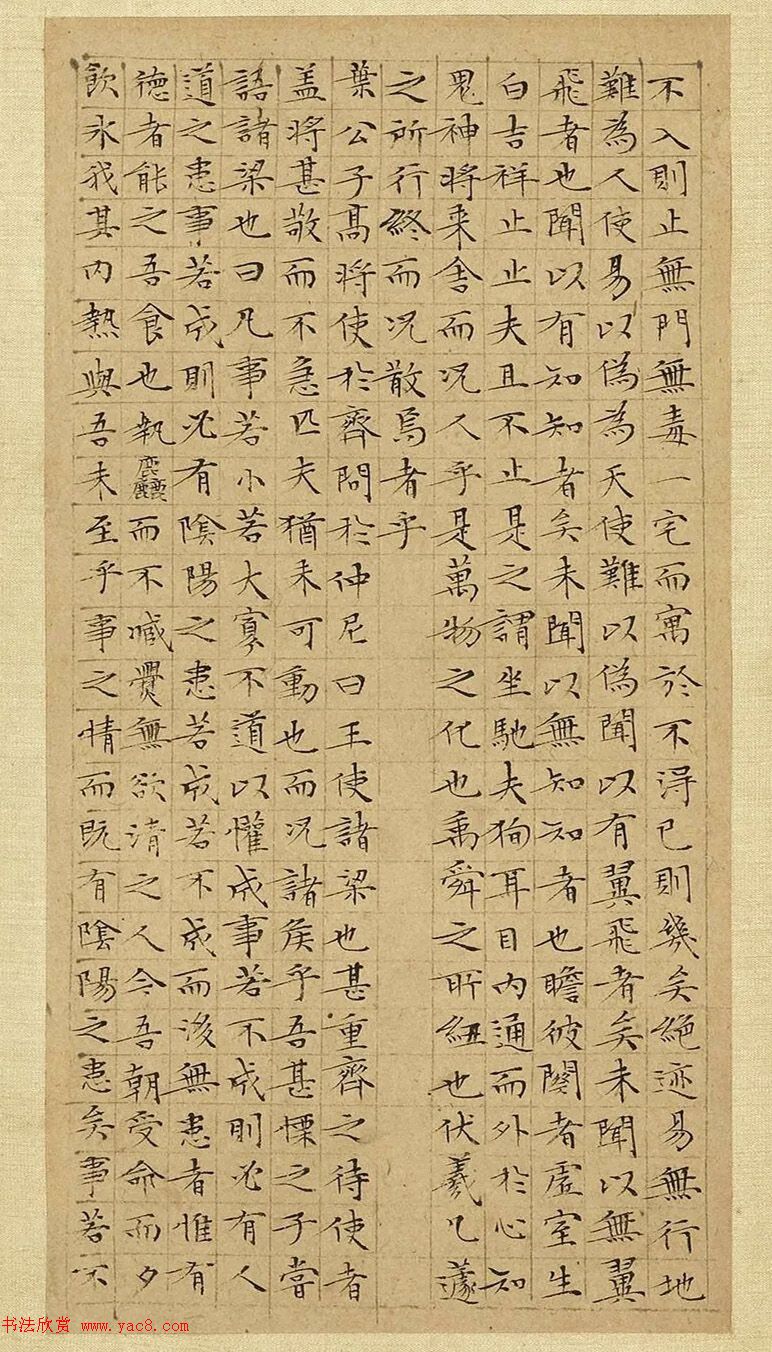 不入則止無門無毒一宅而寓於不淂已則幾矣絕迹易無行地
難為人使易以偽為天使難以偽聞以有翼飛者矣未聞以無翼
飛者也聞以有知知者矣未聞以無知知者也瞻彼闋者虛室生
白吉祥止止夫且不止是之謂坐馳夫徇耳目內通而外於心知
鬼神將来舍而況人乎是萬物之化也禹舜之所紐也伏羲几蘧
之所行終而況散焉者乎
葉公子髙將使於齊問於仲尼曰王使諸梁也甚重齊之待使者
盖將甚敬而不急匹夫猶未可動也而況諸侯乎吾甚慄之子嘗
語諸梁也曰凡事若小若大寡不道以懽成事若不成則必有人
道之患事若成則必有陰陽之患若成若不成而後無患者惟有
德者能之吾食也執麤而不臧爨無欲清之人今吾朝受命而夕
飲氷我其內熱與吾未至乎事之情而既有陰陽之患矣事若不
书法欣赏 www.yac8.com